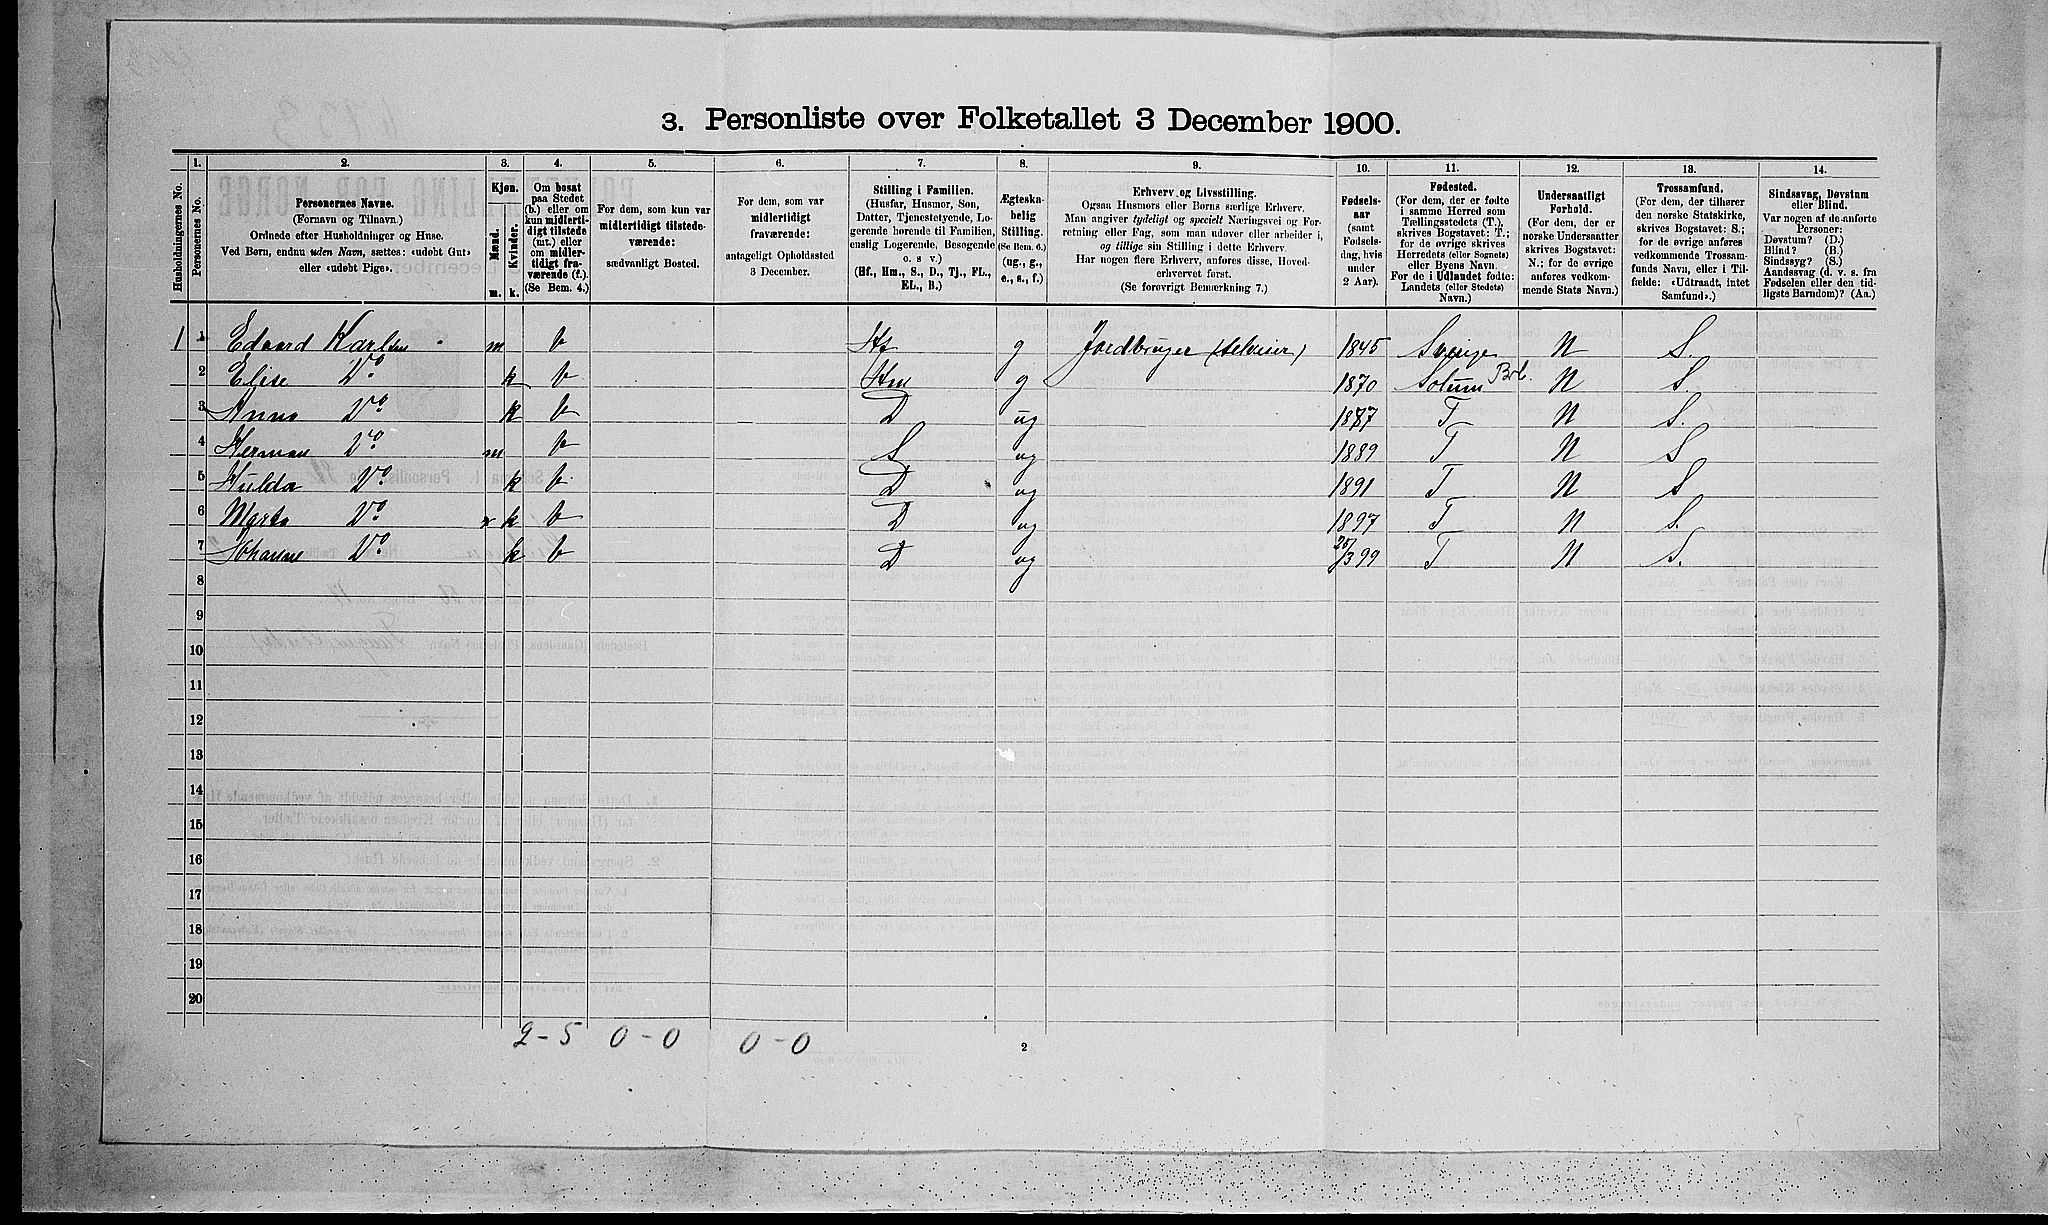 3. Personliste over Folketallet 3 December 1900.
Husholdningernes No.
1.
Personernes No.
2.
Personernes Navne.
(Fornavn og Tilnavn.)
Ordnede efter Husholdninger og Huse.
Ved Børn, endnu uden Navn, sættes: «udøbt Gut»
eller «udøbt Pige».
3.
Kjøn.
Mænd.
Kvinder.
m.
k.
4.
Om bosat
paa Stedet
(b.) eller om
kun midlerti-
digt tilstede
(mt.) eller
om midler-
tidigt fra-
værende (f.).
(Se Bem. 4.)
5.
For dem, som kun var
midlertidigt tilstede-
værende:
sædvanligt Bosted.
6.
For dem, som var
midlertidigt
fraværende:
antageligt Opholdssted
3 December.
7.
Stilling i Familien.
(Husfar, Husmor, Søn,
Datter, Tjenestetyende, Lo-
gerende hørende til Familien,
enslig Logerende, Besøgende
o. s. v.)
(Hf., Hm., S., D., Tj., FL.,
EL., B.)
8.
Ægteska-
belig
Stilling.
(Se Bem. 6.)
(ug., g.,
e., s., f.)
9.
Erhverv og Livsstilling.
Ogsaa Husmors eller Børns særlige Erhverv.
Man angiver tydeligt og specielt Næringsvei og For-
retning eller Fag, som man udøver eller arbeider i,
og tillige sin Stilling i dette Erhverv.
Har nogen flere Erhverv, anføres disse, Hoved-
erhvervet først.
(Se forøvrigt Bemærkning 7.)
10.
Fødsels-
aar
(samt
Fødsels-
dag, hvis
under
2 Aar).
11.
Fødested.
(For dem, der er fødte
i samme Herred som
Tællingsstedets (T.),
skrives Bogstavet: T.;
for de øvrige skrives
Herredets (eller Sognets)
eller Byens Navn.
For de i Udlandet fødte:
Landets (eller Stedets)
Navn.)
12.
Undersaatligt
Forhold.
(For dem, der er
norske Undersaatter
skrives Bogstavet:
N.; for de øvrige
anføres vedkom-
mende Stats Navn.)
13.
Trossamfund.
(For dem, der tilhører
den norske Statskirke,
skrives Bogstavet: S.;
for de øvrige anføres
vedkommende Trossam-
funds Navn, eller i Til-
fælde: «Udtraadt, intet
Samfund».)
14.
Sindssvag, Døvstum
eller Blind.
Var nogen af de anførte
Personer:
Døvstum? (D.)
Blind? (B.)
Sindssyg? (S.)
Aandssvag (d. v. s. fra
Fødselen eller den tid-
ligste Barndom)? (Aa.)
1 1 Edvard Karlsen m b Hf g Jordbruger (selveier) 1845 Sverige N S.
2 Elise Do. k b Hm g 1870 Solum Brb. N S
3 Anna Do. k b D ug 1877 T N S.
4 Herman Do. m b S ug 1889 T N S
5 Hulda Do. k b D ug 1891 T N S
6 Marta Do. k b D ug 1897 T N S.
7 Johanne Do. k b D ug 20/3 99 T N S.
8
9
10
11
12
13
14
15
16
17
18
19
20
2-5 0-0 0-0
2